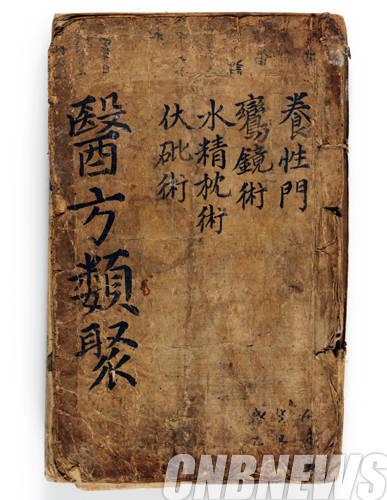 養性門
鸞鏡術
水精枕術
伏砒術
醫方類聚
CNBNEWS